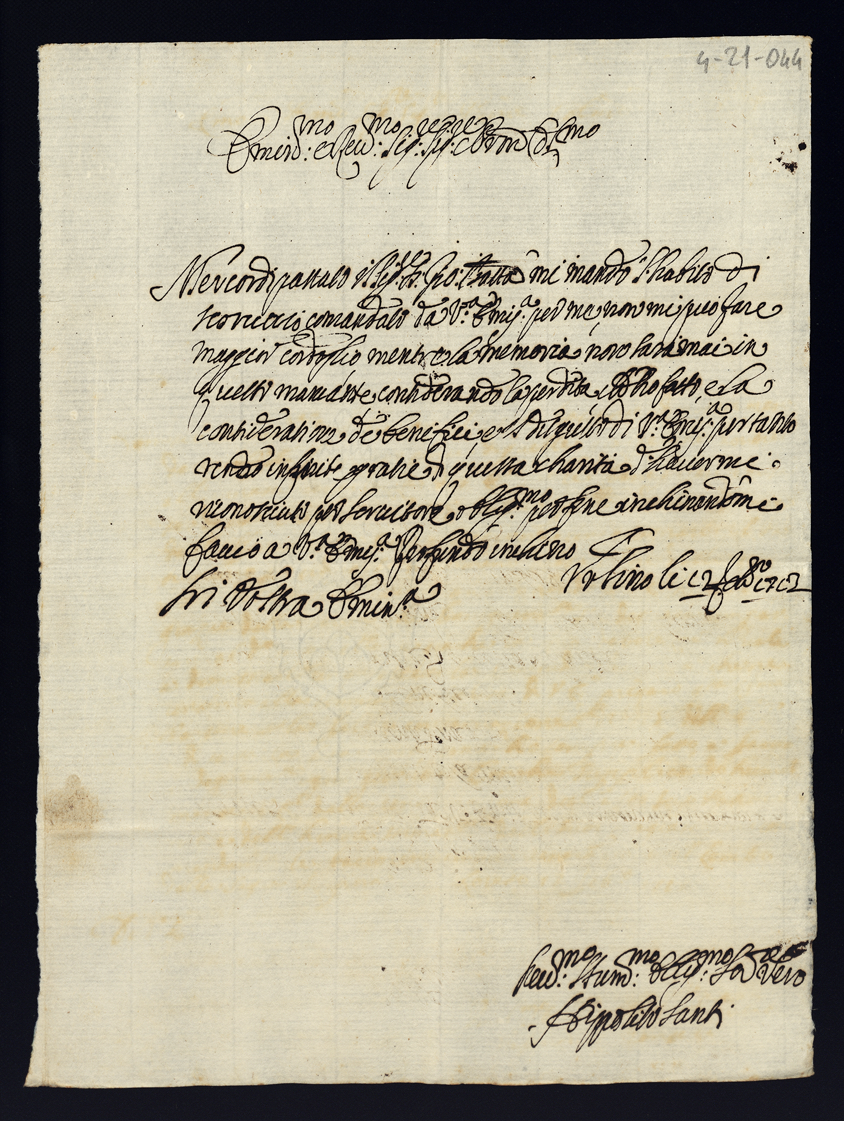 4-21-044
Emin.mo e Reu.mo Sig.re Sig.re e Pron Col.mo
Mercordi passato il Sig.r Gio: Batta mi mandò l'habito di
scoruccio comandato da V.ra Emin.a per me non mi puo fare
maggior cordoglio mentre la memoria non sara mai in
quelli mancante considerando la perdita che ho fatto, e la
consideratione de benefici e di V.ra Emin.a per tanto
rendo infinite gratie di questa charità d'hauerme
riconosciuto per seruitore oblig.mo per fine inchinandome
faccio a V.ra Emin.a profondo inchino
Urbino li 12 feb.ro 1712
Di Vostra Emin.a
Deu.mo Hum.mo Oblig.mo Ser.re vero
Hippolito Santi